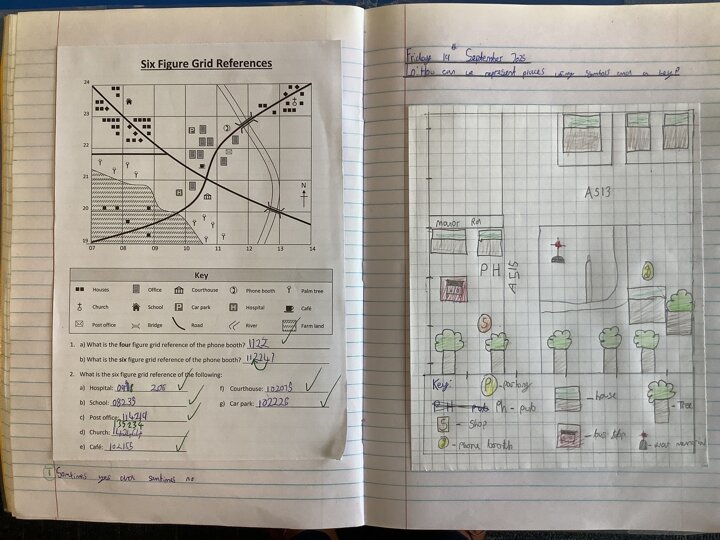 Six Figure Grid References
24
23
22
21
20
19
07 08 09 10 11 12 13 14
N
P
H
Key
Houses Office Courthouse Phone booth Palm tree
Church School Car park Hospital Café
Post office Bridge Road River Farm land
1. a) What is the four figure grid reference of the phone booth? 1122
b) What is the six figure grid reference of the phone booth?
2. What is the six figure grid reference of the following:
a) Hospital: 205
b) School: 08235
c) Post office: 114219
d) Church: 135234
e) Café: 102155
f) Courthouse: 102075
g) Car park: 102225
Somtimes yes over somtimes no
Friday 19th September 2025
How can we represent places using symbols and a key?
A513
Manor Rd
PH
A515
S
Key: P - parking
Ph - pub
S - Shop
- Phone booth
- house
- bus stop
- Tree
- war